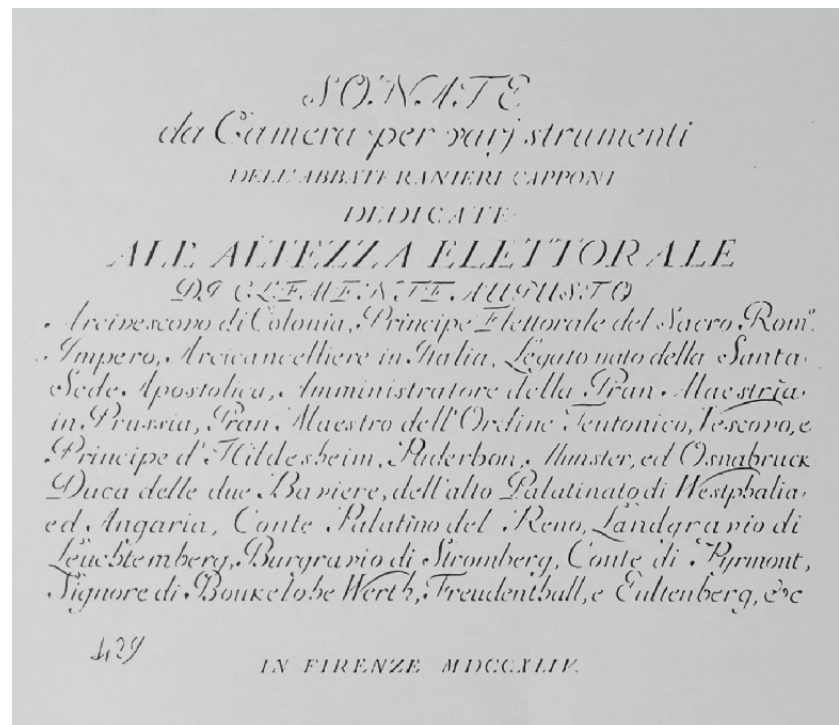 SONATE
da Camera per varj strumenti
DELL'ABBATE RANIERI CAPPONI
DEDICATE
ALL ALTEZZA ELETTORALE
DI CLEMENTE AUGUSTO
Arcivescovo di Colonia, Principe Elettorale del Sacro Rom.º
Impero, Arcicancelliere in Italia, Legato nato della Santa
Sede Apostolica, Amministratore della Gran Maestria
in Prussia, Gran Maestro dell'Ordine Teutonico, Vescovo, e
Principe d'Hildesheim, Paderbon, Munster, ed Osnabruck
Duca delle due Baviere, dell'alto Palatinato di Westphalia
ed Angaria, Conte Palatino del Reno, Landgravio di
Leuchtemberg, Burgravio di Stromberg, Conte di Pyrmont,
Signore di Boukelohe Werth, Freudenthall, e Eultenberg, &c
429
IN FIRENZE MDCCXLIV.